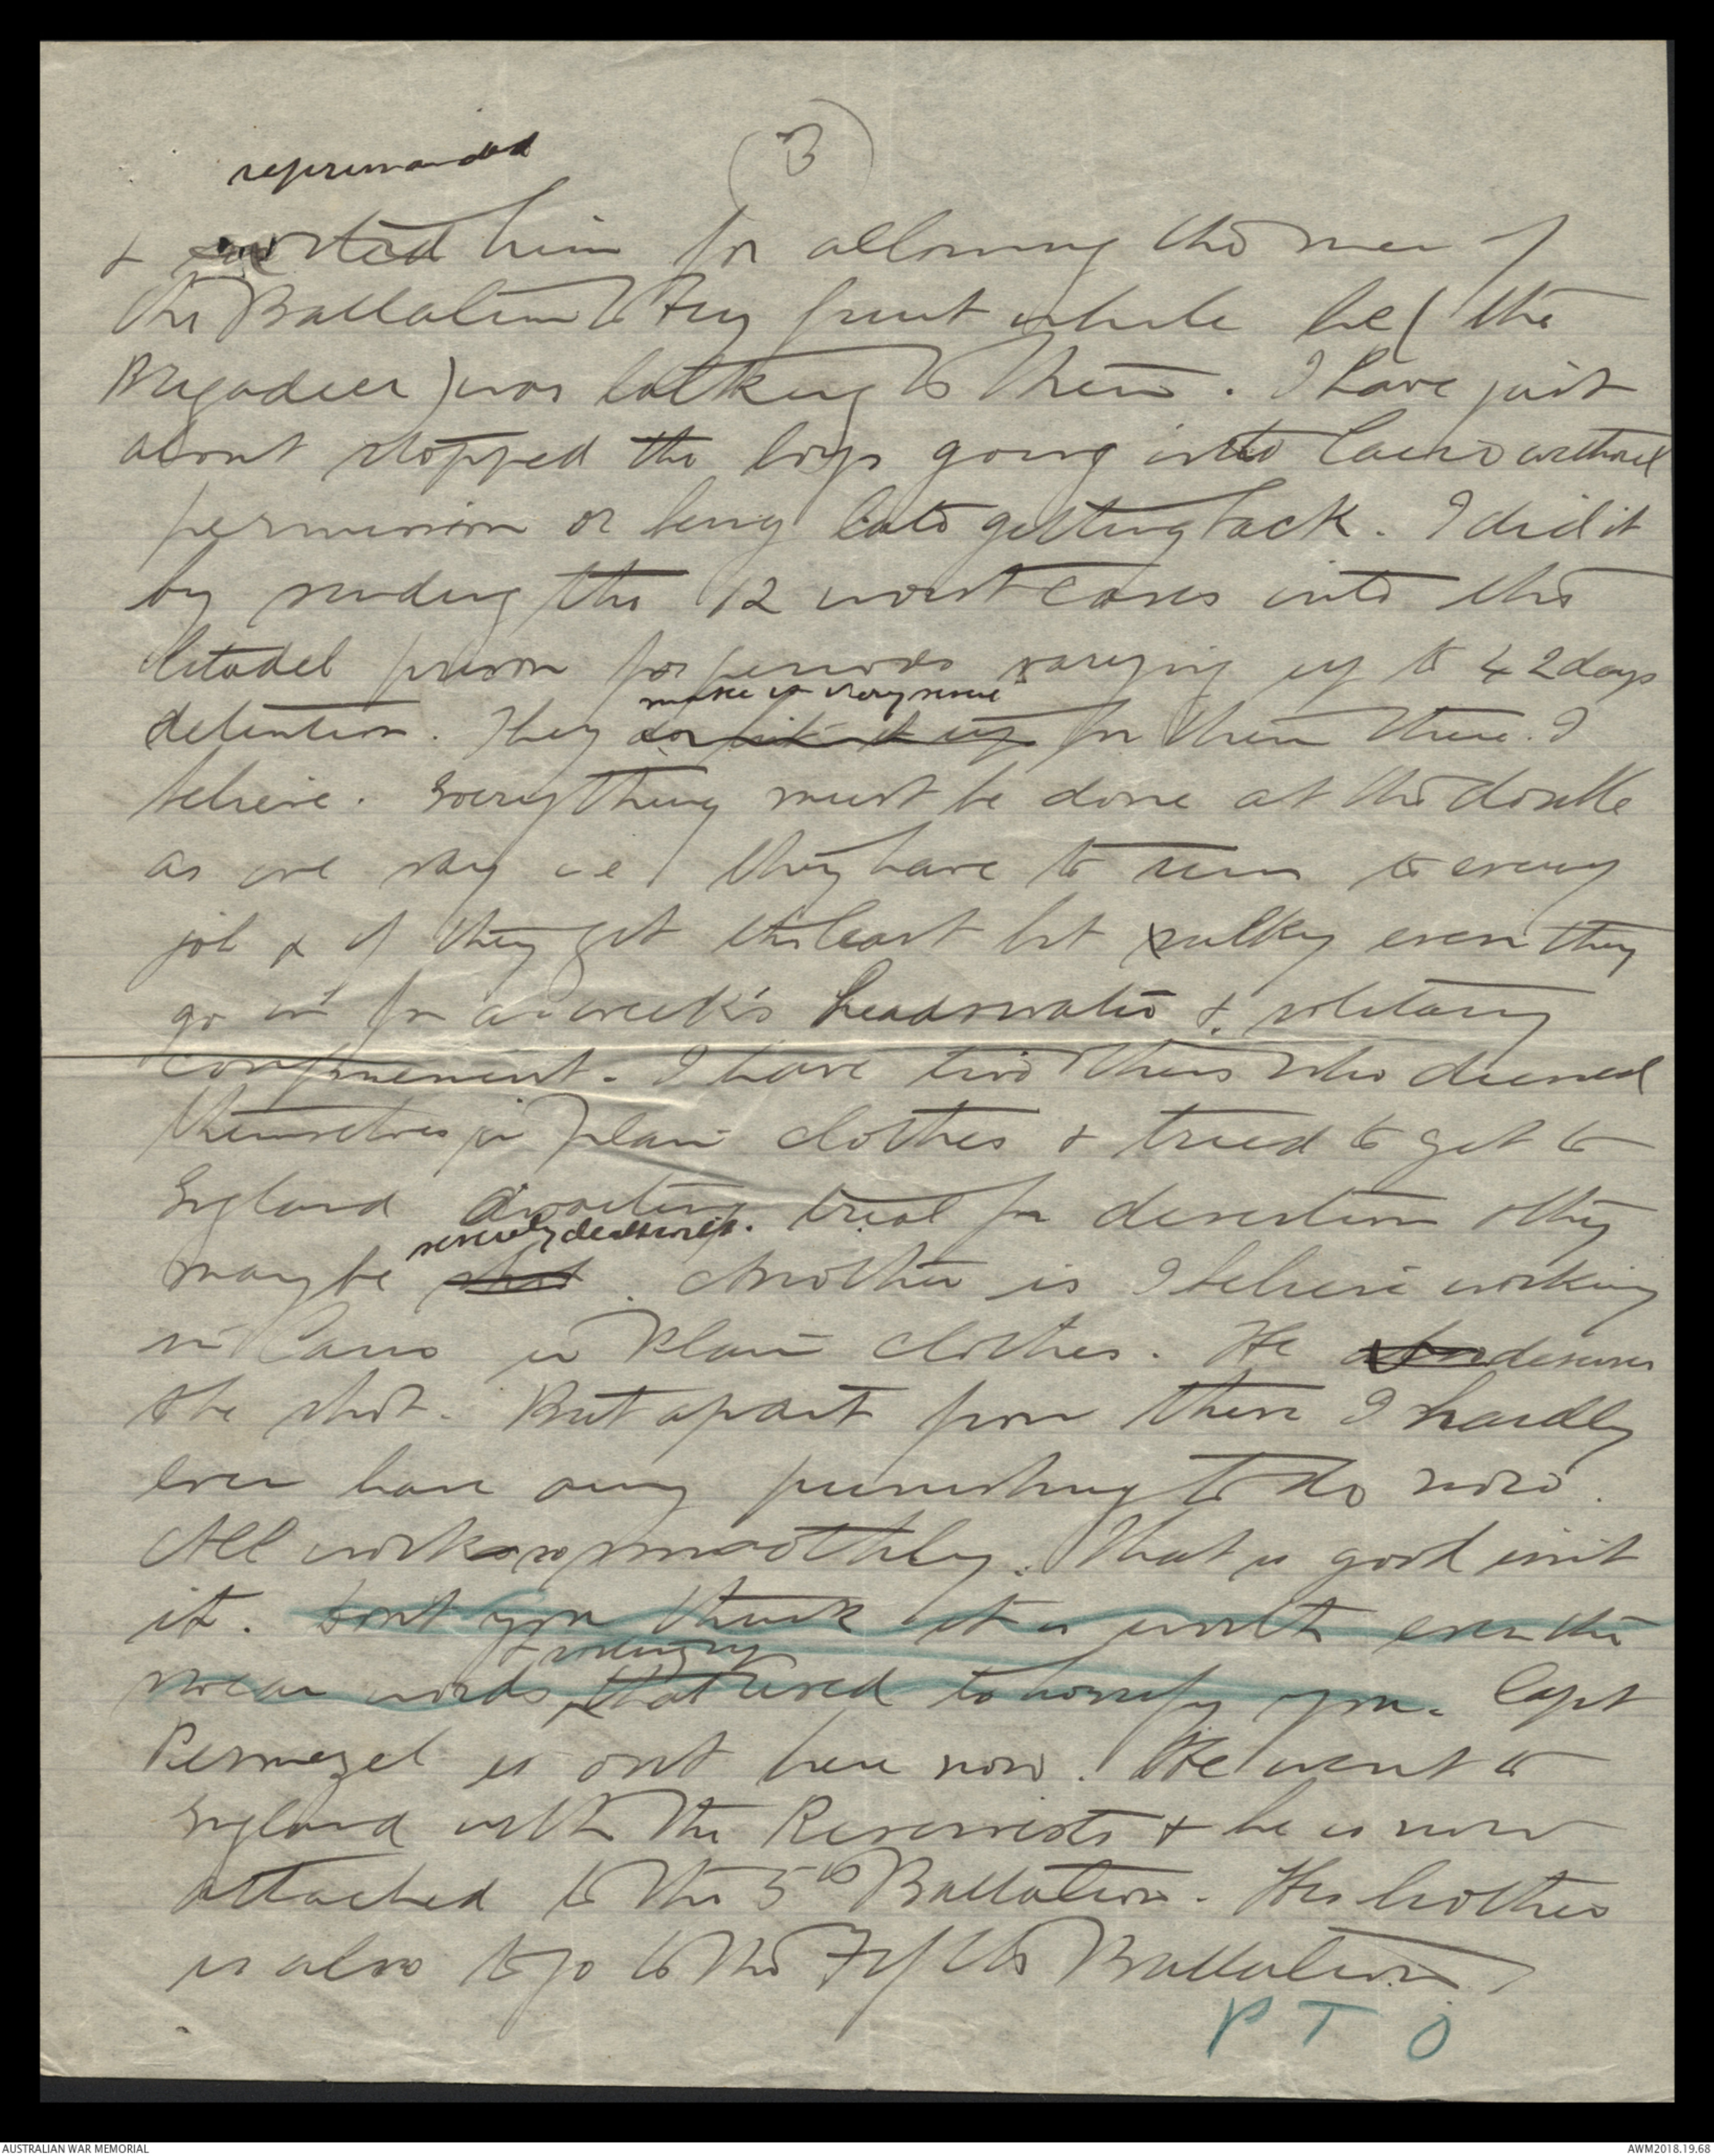 (3)
reprimanded
& him for allowing the men of
the Battalion to buy fruit while he (the
Brigadier) was talking to them. I have just
about stopped the boys going into Cairo without
permission or being late getting back. I did it
by sending the 12 worst cases into the
Citadel prison for periods varying up to 42 days
make it very severe
detention. They do put it up for them there. I
believe. Everything must be done at the double
as we say i e they have to run to every
job & if they get the least bit sulky even they
go in for a week's bread & water & solitary
confinement. I have two others who dressed
themselves in plain clothes & tried to get to
England awaiting trial for desertion & they
severely dealt with.
may be shot. Another is I believe working
in Cairo in plain clothes. He deserves
to be shot. But apart from these I hardly
ever have any punishing to do now.
All works so smoothly. That is good isn't
it. Don't you think it is worth even the
swear words that used to horrify you. Capt
Permezel is out here now. He went to
England with the Reservists & he is now
attached to the 5th Battalion. His brother
is also to go to the Fifth Battalion
P T O
AUSTRALIAN WAR MEMORIAL
AWM2018.19.68